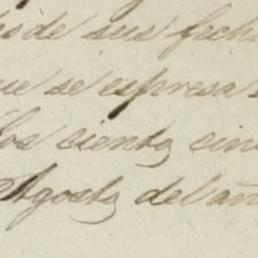 de sus fech
ue se espresa
los ciento cin
Agosto del añ